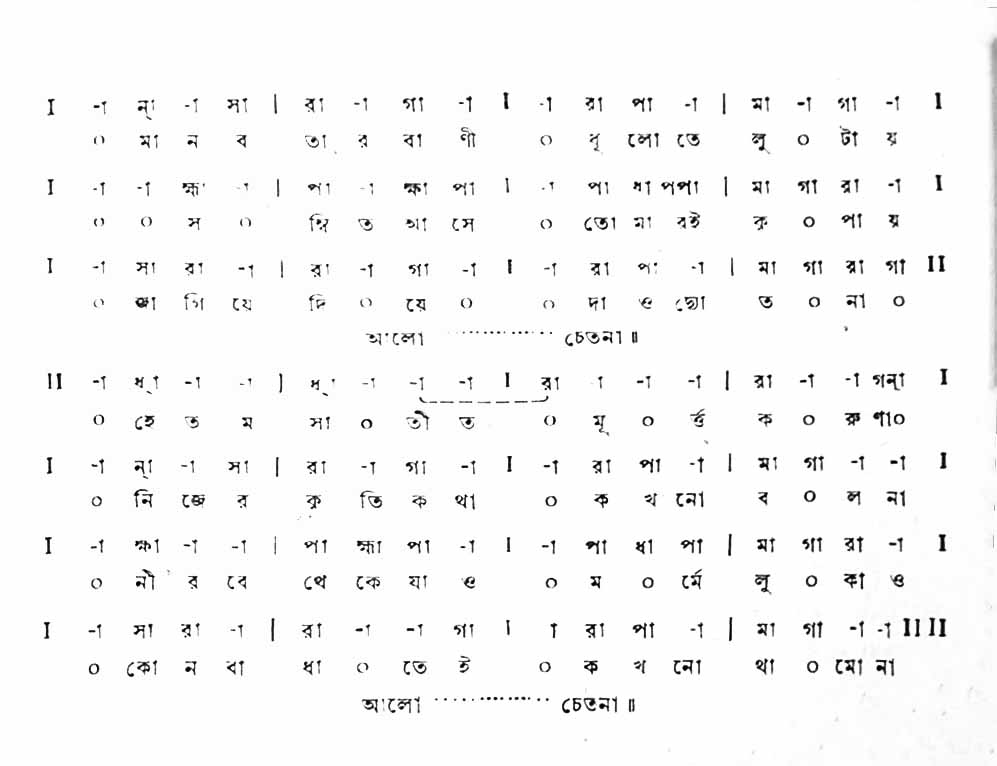 I -া ন্‌া -া সা | রা -া গা -া I -া রা পা -া | মা -া গা -া I
০ মা ন ব তা র বা ণী ০ ধূ লো তে লু ০ টা য়
I -া -া হ্মা -া | পা -া হ্মা পা I -া পা ধা পপা | মা গা রা -া I
০ ০ স ০ ম্বি ত আ সে ০ তো মা রই কৃ ০ পা য়
I -া সা রা -া | রা -া গা -া I -া রা পা -া | মা গা রা গা II
০ জা গি য়ে দি ০ য়ে ০ ০ দা ও দ্যো ত ০ না ০
আলো ·············· চেতনা॥
II -া ধ্‌া -া -া | ধ্‌া -া -া -া I রা -া -া -া | রা -া -া গন্‌া I
০ হে ত ম সা ০ তী ত ০ মূ ০ র্ত্ত ক ০ রু ণা০
I -া ন্‌া -া সা | রা -া গা -া I -া রা পা -া | মা গা -া -া I
০ নি জে র কৃ তি ক থা ০ ক খ নো ব ০ ল না
I -া হ্মা -া -া | পা হ্মা পা -া I -া পা ধা পা | মা গা রা -া I
০ নী র বে থে কে যা ও ০ ম ০ র্মে লু ০ কা ও
I -া সা রা -া | রা -া -া গা I া রা পা -া | মা গা -া -া II II
০ কো ন বা ধা ০ তে ই ০ ক খ নো থা ০ মো না
আলো ·············· চেতনা॥